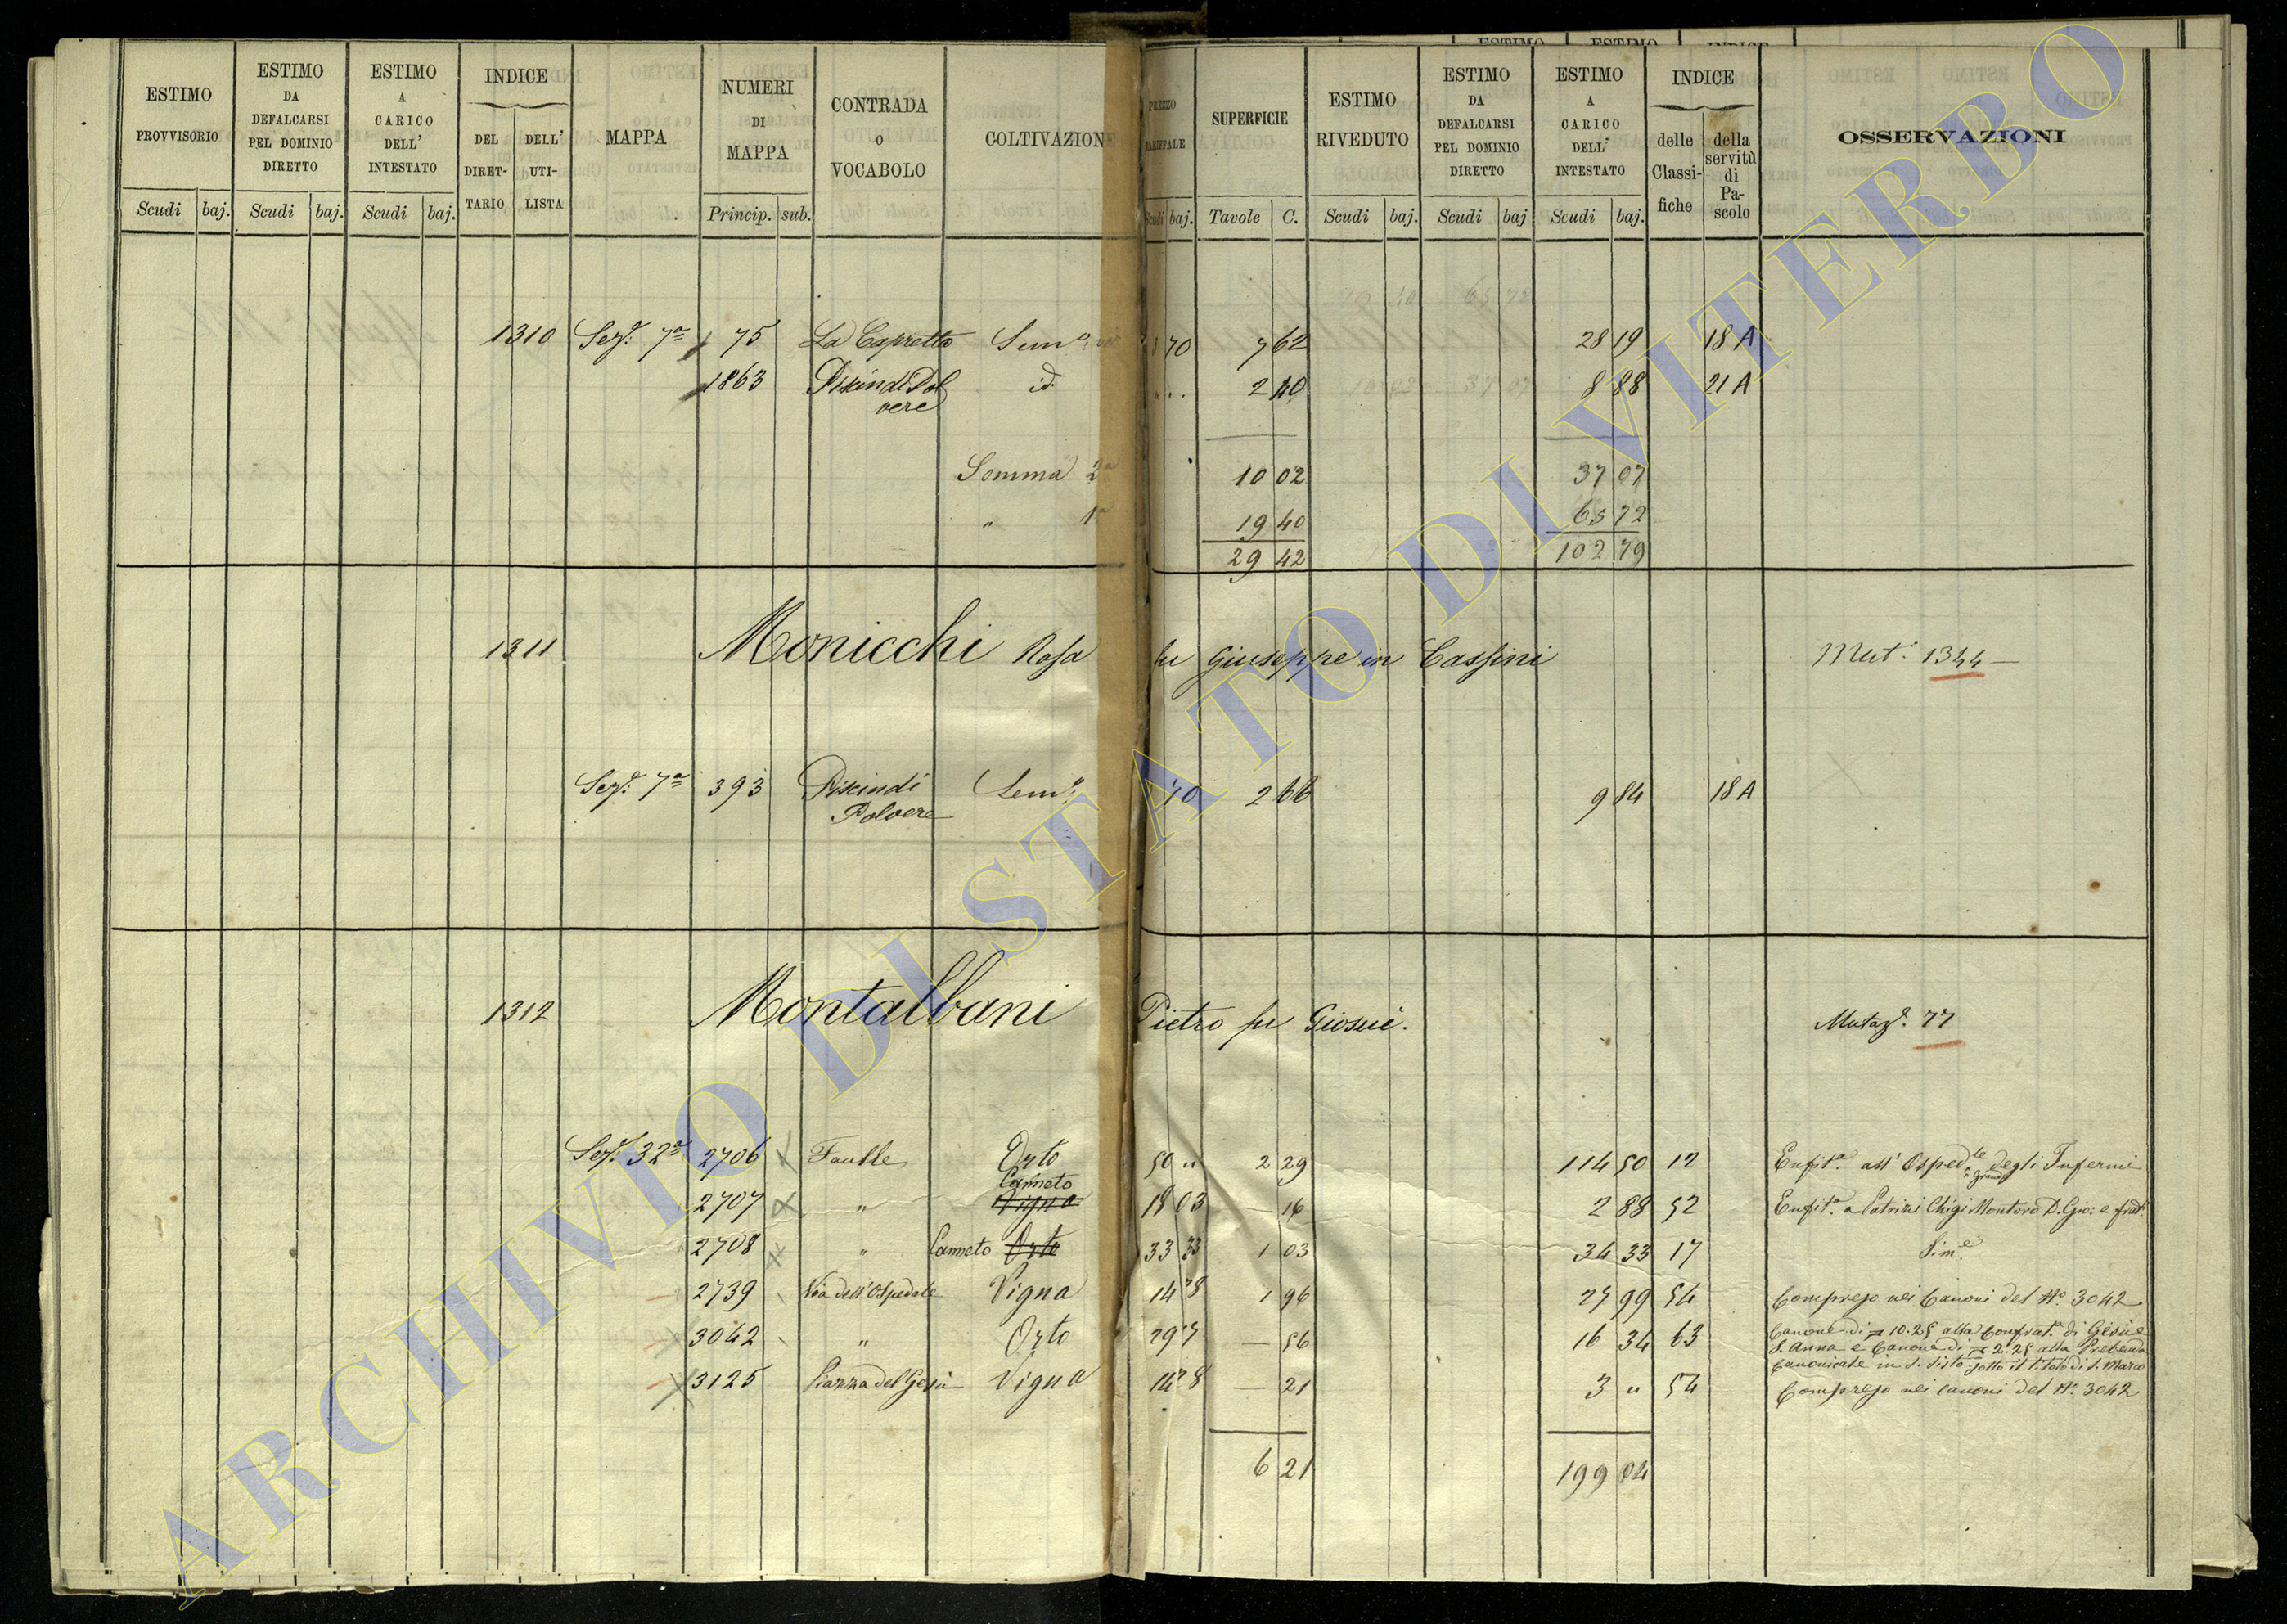 ESTIMO PROVVISORIO Scudi baj.
ESTIMO DA DEFALCARSI PEL DOMINIO DIRETTO Scudi baj.
ESTIMO A CARICO DELL' INTESTATO Scudi baj.
INDICE DEL DIRET-TARIO DELL' UTI-LISTA
MAPPA
NUMERI DI MAPPA Princip. sub.
CONTRADA o VOCABOLO
COLTIVAZIONE
PREZZO Scudi baj.
SUPERFICIE Tavole C.
ESTIMO RIVEDUTO Scudi baj.
ESTIMO DA DEFALCARSI PEL DOMINIO DIRETTO Scudi baj
ESTIMO A CARICO DELL' INTESTATO Scudi baj.
INDICE delle Classi-fiche della servitù di Pa-scolo
OSSERVAZIONI
1310 Sezᵉ 7ª 75 La Capretta Semº 70 7 62 28 19 18 A
1863 Piscindi Pol id. 2 40 8 88 21 A
vere
Somma 2ª 10 02 37 07
" 1ª 19 40 65 72
29 42 102 79
1311 Monicchi Rosa fu Giuseppe in Cassini Mutᵉ 1344
Sezᵉ 7ª 393 Piscindi Semº 70 2 66 9 84 18 A
Polvere
1312 Montalbani Pietro fu Giosuè. Mutazᵉ. 77
Sezᵉ 32ª 2706 Faulle Orto 50 " 2 29 114 50 12 Enfitª. all' Ospedˡᵉ grande degli Infermi
2707 " Canneto Vigna 18 03 — 16 2 88 52 Enfitª. a Patrizi Chigi Montoro D. Gio: e frat.
2708 " Canneto Orto 33 33 1 03 34 33 17 Simᵉ.
2739 Via dell' Ospedale Vigna 14 28 1 96 27 99 54 Compreso nei Canoni del Nº. 3042
3042 " Orto 29 17 — 56 16 34 63 Canone di 10.25 alla Confratª. di Gesù e
S. Anna e Canone di 2.25 alla Prebenda
Canonicale in S. Sisto sotto il titolo di S. Marco
3125 Piazza del Gesù Vigna 14 28 — 21 3 " 54 Compreso nei canoni del Nº. 3042
6 21 199 04
ARCHIVIO DI STATO DI VITERBO